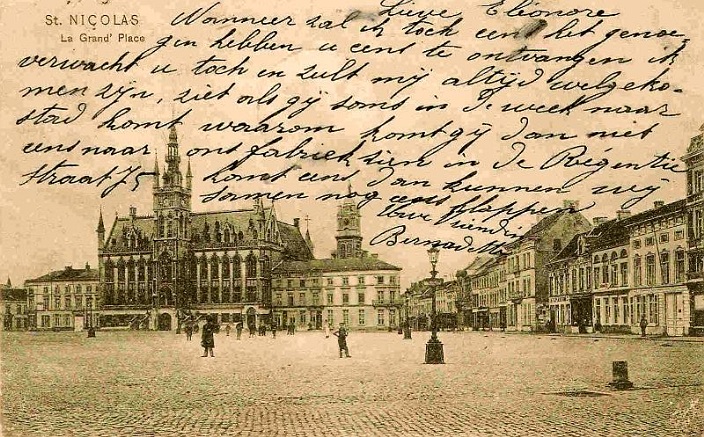 St. NIÇOLAS
La Grand' Place
Lieve Eleonore
Wanneer zal ik toch eens het genoe-
gen hebben u eens te ontvangen ik
verwacht u toch en zult mij altijd welgeko-
men zijn, ziet als gij soms in de week naar
stad komt waarom komt gij dan niet
eens naar ons fabriek zien in de Régentie
straat 75 komt eens dan kunnen wij
samen nog eens klappen
vriendin
Bernadette